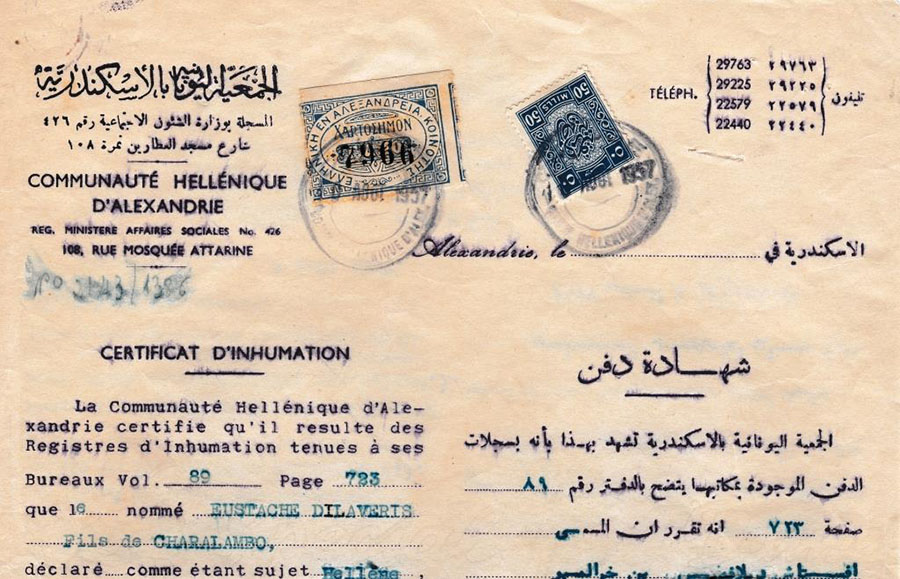 الجمعية اليونانية بالاسكندرية
المسجلة بوزارة الشئون الاجتماعية رقم ٤٢٦
شارع مسجد العطارين نمرة ١٠٨
COMMUNAUTÉ HELLÉNIQUE
D'ALEXANDRIE
REG. MINISTERE AFFAIRES SOCIALES No. 426
108, RUE MOSQUÉE ATTARINE
ΕΛΛΗΝΙΚΗ ΕΝ ΑΛΕΞΑΝΔΡΕΙΑ ΚΟΙΝΟΤΗΣ
ΧΑΡΤΟΣΗΜΟΝ
7966
1957
50 MILLS 50
1957
TÉLÉPH.
29763 ٢٩٧٦٣
29225 ٢٩٢٢٥
22579 ٢٢٥٧٩
22440 ٢٢٤٤٠
تليفون
Alexandrie, le الاسكندرية في
CERTIFICAT D'INHUMATION
La Communauté Hellénique d'Ale-
xandrie certifie qu'il resulte des
Registres d'Inhumation tenues à ses
Bureaux Vol. 89 Page 723
que le nommé EUSTACHE DILAVERIS
Fils de CHARALAMBO,
déclaré comme étant sujet Hellène,
شهادة دفن
الجمعية اليونانية بالاسكندرية تشهد بهذا بأنه بسجلات
الدفن الموجودة بمكاتبها يتضح بالدفتر رقم ٨٩
صفحة ٧٢٣ انه تقرر ان المسمى